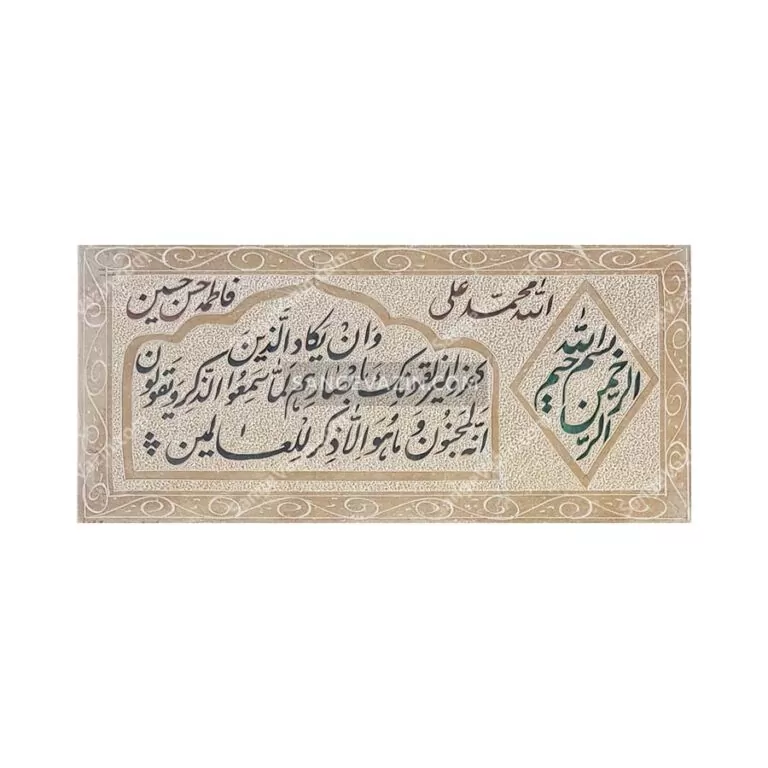 بسم الله
الرحمن
الرحیم
الله محمد علی
فاطمه حسن حسین
وَاِنْ یَکادُ الَّذینَ
کفروا لیزلقونک بابصارهم لَمَّا سَمِعُوا الذِّکر و یَقولون
انَّه لمجنون وَ ما هُوَ الّا ذِکر لِلعالمین
SANGEVAZIN.COM